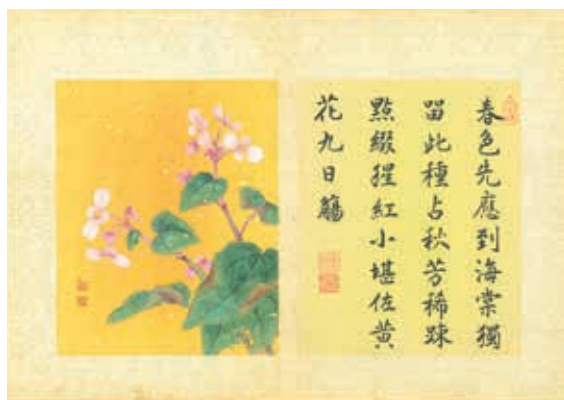 春色先應到海棠獨
畱此種占秋芳稀踈
點綴猩紅小堪佐黃
花九日觴